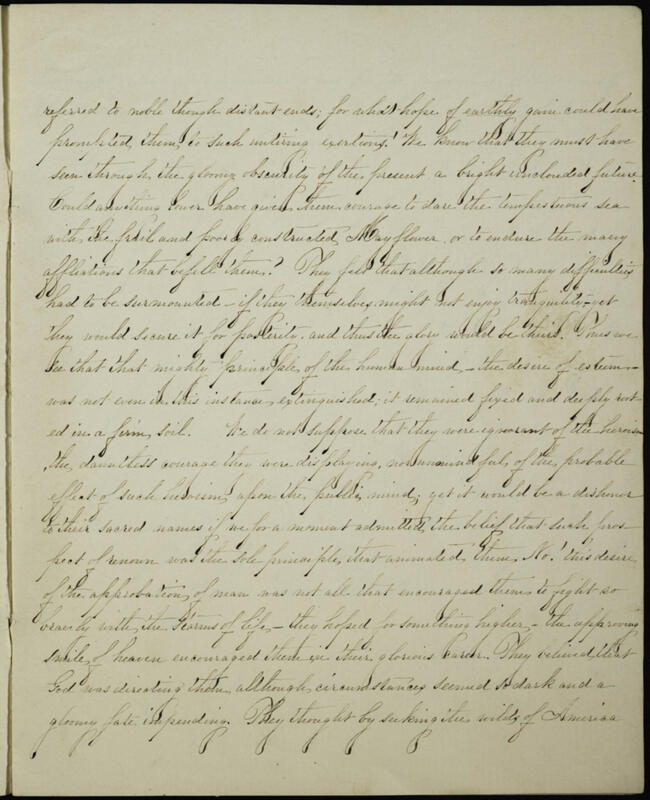 referred to noble though distant ends; for what hope of earthly gain could have
prompted them to such untiring exertions? We know that they must have
seen through the gloomy obscurity of the present a bright unclouded future.
Could anything lower have given them courage to dare the tempestuous sea
with the frail and poorly constructed Mayflower, or to endure the many
afflictions that befell them? They felt that although so many difficulties
had to be surmounted – if they themselves might not enjoy tranquility – yet
they would secure it for posterity, and thus the glory would be theirs. Thus we
see that that mighty principle of the human mind – the desire of esteem –
was not even in this instance extinguished; it remained fixed and deeply root
ed in a firm soil. We do not suppose that they were ignorant of the heroism
the dauntless courage they were displaying, nor unmindful, of the probable
effect of such heroism upon the public mind; yet it would be a dishonor
to their sacred names if we for a moment admitted the belief that such pros
pect of renown was the sole principle, that animated them. No! this desire
of the approbation of man was not all that encouraged them to fight so
bravely with the storms of life – they hoped for something higher – the approving
smile of heaven encouraged them in their glorious career. They believed that
God was directing them although circumstances seemed so dark and a
gloomy fate impending. They thought by seeking the wilds of America